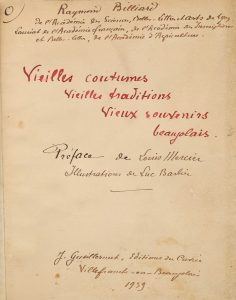 Raymond Billiard
de l'Académie des Sciences, Belles-Lettres et Arts de Lyon
Lauréat de l'Académie française, de l'Académie des Inscriptions
et Belles-Lettres, de l'Académie d'Agriculture.
Vieilles coutumes
Vieilles traditions
Vieux souvenirs
beaujolais.
Préface de Louis Mercier
Illustrations de Luc Barbier
J. Guillermet, Editions du Cuvier
Villefranche-en-Beaujolais
1939